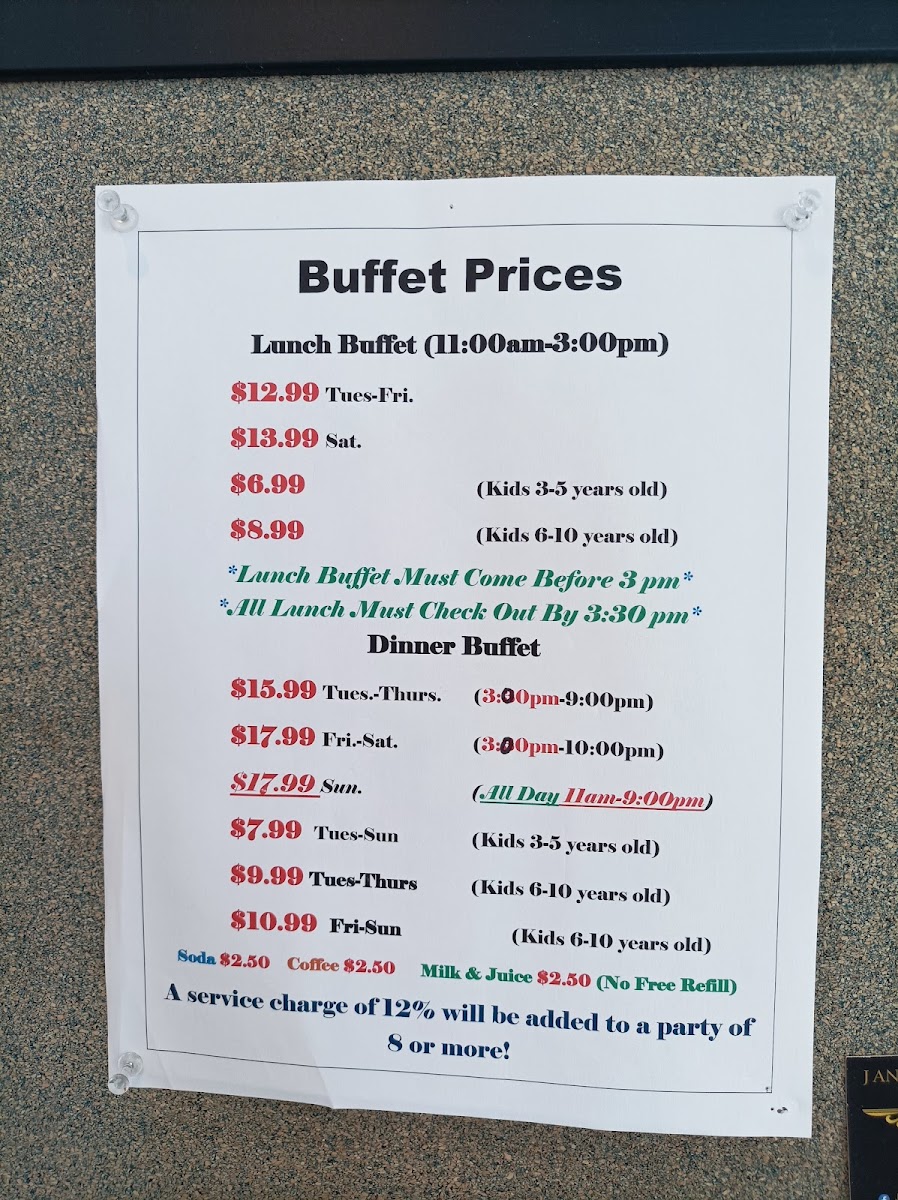 Buffet Prices
Lunch Buffet (11:00am-3:00pm)
$12.99 Tues-Fri.
$13.99 Sat.
$6.99 (Kids 3-5 years old)
$8.99 (Kids 6-10 years old)
*Lunch Buffet Must Come Before 3 pm*
*All Lunch Must Check Out By 3:30 pm*
Dinner Buffet
$15.99 Tues.-Thurs. (3:00pm-9:00pm)
$17.99 Fri.-Sat. (3:00pm-10:00pm)
$17.99 Sun. (All Day 11am-9:00pm)
$7.99 Tues-Sun (Kids 3-5 years old)
$9.99 Tues-Thurs (Kids 6-10 years old)
$10.99 Fri-Sun (Kids 6-10 years old)
Soda $2.50 Coffee $2.50 Milk & Juice $2.50 (No Free Refill)
A service charge of 12% will be added to a party of
8 or more!
JAN